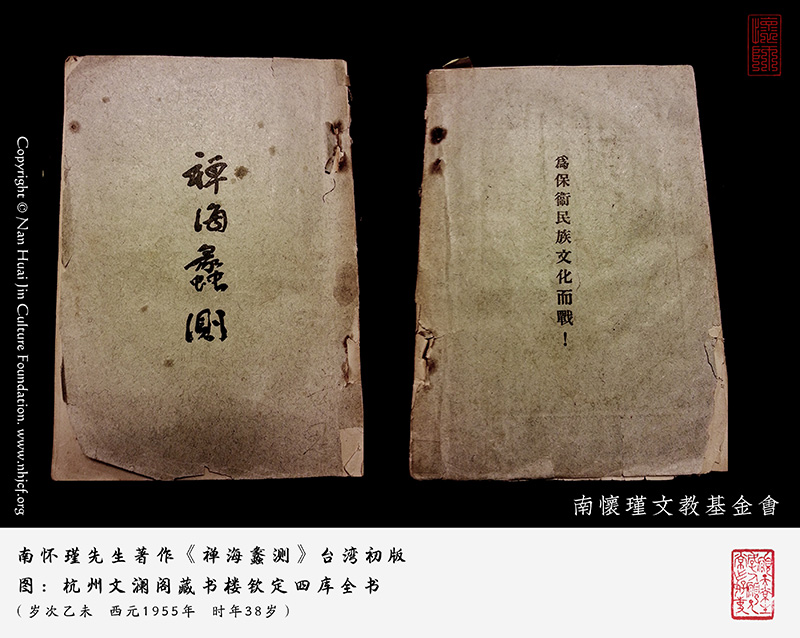 禅海蠡测
為保衞民族文化而戰！
Copyright © Nan Huai Jin Culture Foundation. www.nhjcf.org
南懷瑾文教基金會
南怀瑾先生著作《禅海蠡测》台湾初版
图：杭州文澜阁藏书楼钦定四库全书
（岁次乙未 西元1955年 时年38岁）